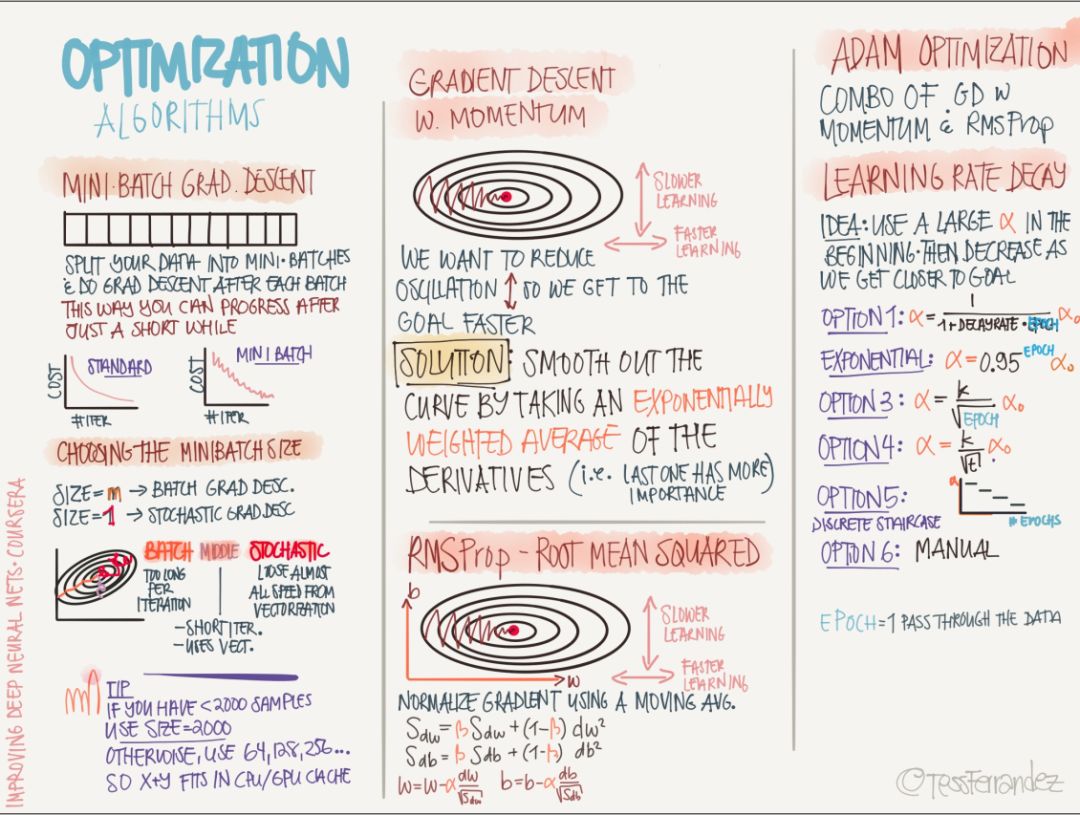 OPTIMIZATION
ALGORITHMS
MINI-BATCH GRAD. DESCENT
SPLIT YOUR DATA INTO MINI-BATCHES
& DO GRAD DESCENT AFTER EACH BATCH
THIS WAY YOU CAN PROGRESS AFTER
JUST A SHORT WHILE
COST
STANDARD
# ITER
COST
MINI BATCH
# ITER
CHOOSING THE MINIBATCH SIZE
SIZE=m → BATCH GRAD DESC.
SIZE=1 → STOCHASTIC GRAD DESC
BATCH MIDDLE STOCHASTIC
TOO LONG
PER
ITERATION
LOSE ALMOST
ALL SPEED FROM
VECTORIZATION
-SHORT ITER.
-USES VECT.
TIP
IF YOU HAVE <2000 SAMPLES
USE SIZE=2000
OTHERWISE, USE 64,128,256...
SO X+Y FITS IN CPU/GPU CACHE
IMPROVING DEEP NEURAL NETS · COURSERA
GRADIENT DESCENT
W. MOMENTUM
SLOWER
LEARNING
FASTER
LEARNING
WE WANT TO REDUCE
OSCILLATION ↕ SO WE GET TO THE
GOAL FASTER
SOLUTION: SMOOTH OUT THE
CURVE BY TAKING AN EXPONENTIALLY
WEIGHTED AVERAGE OF THE
DERIVATIVES (i.e. LAST ONE HAS MORE
IMPORTANCE)
RMSProp - ROOT MEAN SQUARED
b
w
SLOWER
LEARNING
FASTER
LEARNING
NORMALIZE GRADIENT USING A MOVING AVG.
Sdw = β Sdw + (1-β) dw²
Sdb = β Sdb + (1-β) db²
w=w-α dw/√Sdw b=b-α db/√Sdb
ADAM OPTIMIZATION
COMBO OF GD W
MOMENTUM & RMSProp
LEARNING RATE DECAY
IDEA: USE A LARGE α IN THE
BEGINNING. THEN DECREASE AS
WE GET CLOSER TO GOAL
OPTION 1: α = 1/(1+DECAYRATE·EPOCH) α₀
EXPONENTIAL: α = 0.95^EPOCH α₀
OPTION 3: α = k/√EPOCH α₀
OPTION 4: α = k/√t α₀
OPTION 5:
DISCRETE STAIRCASE
α
# EPOCHS
OPTION 6: MANUAL
EPOCH = 1 PASS THROUGH THE DATA
©TessFerrandez